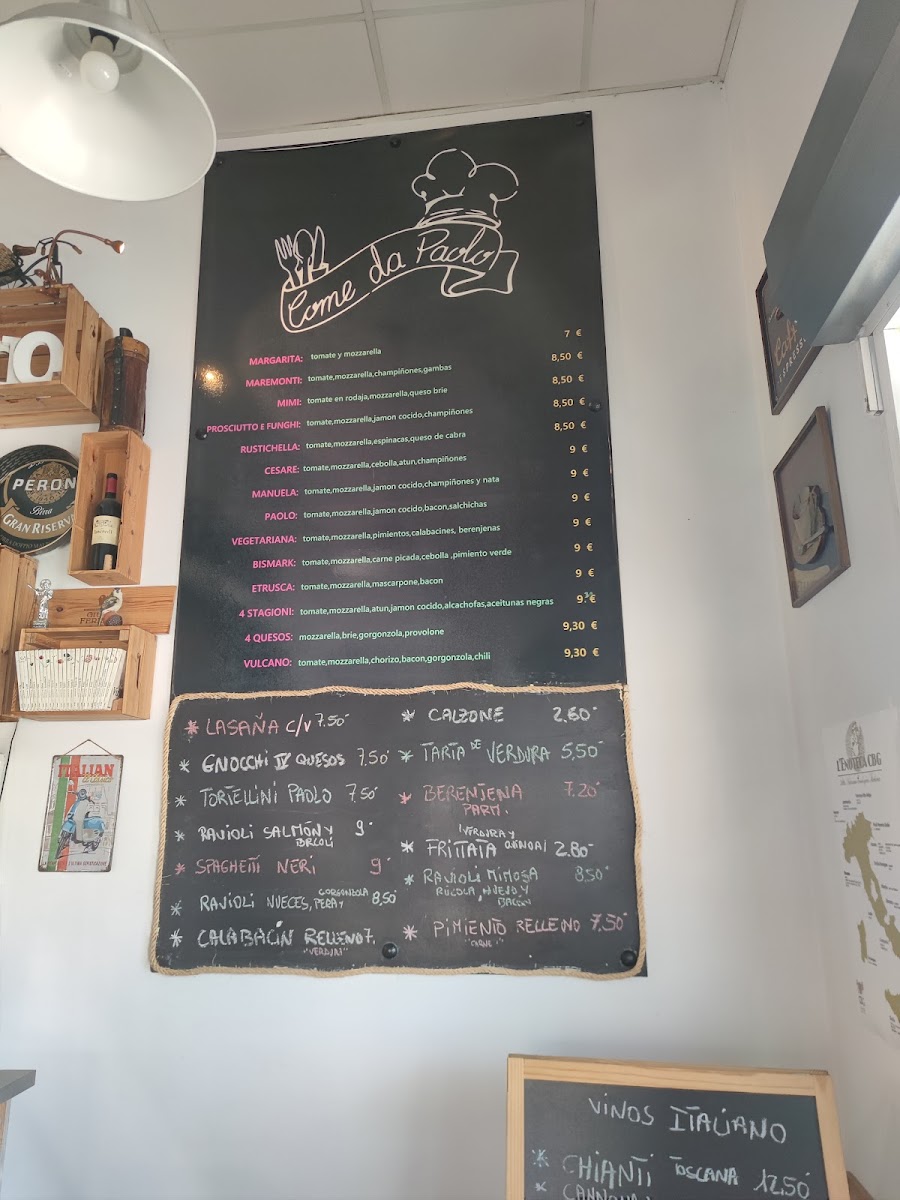 Come da Paolo
MARGARITA: tomate y mozzarella 7 €
MAREMONTI: tomate,mozzarella,champiñones,gambas 8,50 €
MIMI: tomate en rodaja,mozzarella,queso brie 8,50 €
PROSCIUTTO E FUNGHI: tomate,mozzarella,jamon cocido,champiñones 8,50 €
RUSTICHELLA: tomate,mozzarella,espinacas,queso de cabra 8,50 €
CESARE: tomate,mozzarella,cebolla,atun,champiñones 9 €
MANUELA: tomate,mozzarella,jamon cocido,champiñones y nata 9 €
PAOLO: tomate,mozzarella,jamon cocido,bacon,salchichas 9 €
VEGETARIANA: tomate,mozzarella,pimientos,calabacines, berenjenas 9 €
BISMARK: tomate,mozzarella,carne picada,cebolla ,pimiento verde 9 €
ETRUSCA: tomate,mozzarella,mascarpone,bacon 9 €
4 STAGIONI: tomate,mozzarella,atun,jamon cocido,alcachofas,aceitunas negras 9.30 €
4 QUESOS: mozzarella,brie,gorgonzola,provolone 9,30 €
VULCANO: tomate,mozzarella,chorizo,bacon,gorgonzola,chili 9,30 €
* LASAÑA C/V 7.50
* GNOCCHI IV QUESOS 7.50
* TORTELLINI PAOLO 7.50
* RAVIOLI SALMÓN Y 9
* SPAGHETTI NERI 9
* RAVIOLI NUECES, PERA Y GORGONZOLA 8,50
* CALABACÍN RELLENO 7.
* CALZONE 2.60
* TARTA DE VERDURA 5,50
* BERENJENA 7.20
PARM.
* FRITTATA 2.80
VERDURA Y
* RAVIOLI MIMOSA 8,50
RÚCOLA, HUEVO Y
BACON
* PIMIENTO RELLENO 7,50
"CARNE"
VINOS ITALIANO
* CHIANTI TOSCANA 12,50
PERONI
Birra
GRAN RISERVA
ITALIAN
L'ENOTECA CDG
ESPRESSO